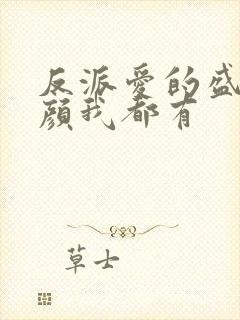 反派爱的盛
颜我都有
草士